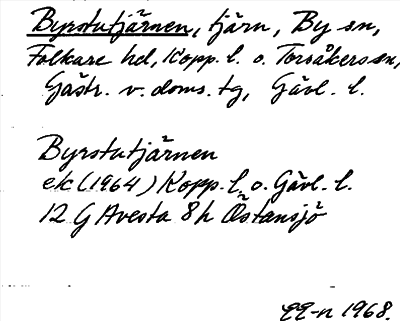 Byrstutjärnen, tjärn, By sn,
Folkare hd, Kopp. l. o. Torsåkers sn,
Gästr. v. doms. tg, Gävl. l.
Byrstutjärnen
ek (1964) Kopp. l. o. Gävl. l.
12 G Avesta 8 h Östansjö
1968.